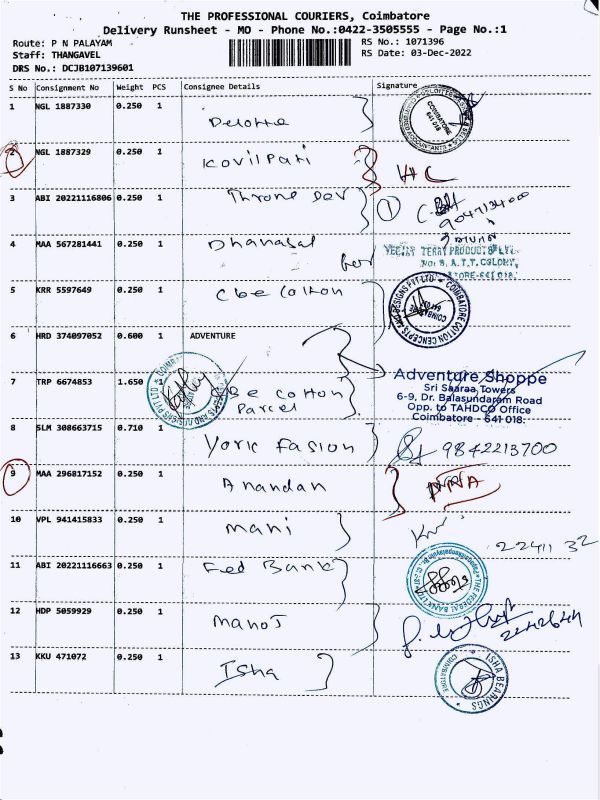 THE PROFESSIONAL COURIERS, Coimbatore
Delivery Runsheet - MO - Phone No.:0422-3505555 - Page No.:1
Route: P N PALAYAM
RS No.: 1071396
Staff: THANGAVEL
RS Date: 03-Dec-2022
DRS No.: DCJB107139601
S No Consignment No Weight PCS Consignee Details Signature
1 NGL 1887330 0.250 1 Deloitte
COIMBATORE 641 018
2 NGL 1887329 0.250 1 Kovilpati
3 ABI 20221116806 0.250 1 Throne Dev 1
4 MAA 567281441 0.250 1 Dhanabal for
TERRY PRODUCTS
No: 8, A.T.T. COLONY,
5 KRR 5597649 0.250 1 Cbe Cotton
COIMBATORE COTTON CONCEPTS AND DESIGNS PVT LTD
6 HRD 374097052 0.600 1 ADVENTURE
Adventure Shoppe
Sri Saaraa Towers
6-9, Dr. Balasundaram Road
Opp. to TAHDCO Office
Coimbatore - 641 018.
7 TRP 6674853 1.650 1 Cbe Cotton
Parcel
8 SLM 308663715 0.710 1 York Fasion 9842213700
9 MAA 296817152 0.250 1 Anandan
10 VPL 941415833 0.250 1 Mani
11 ABI 20221116663 0.250 1 Fed Bank
THE FEDERAL BANK LTD
12 HDP 5059929 0.250 1 Manoj
13 KKU 471072 0.250 1 Isha
ISHA BEARINGS COIMBATORE